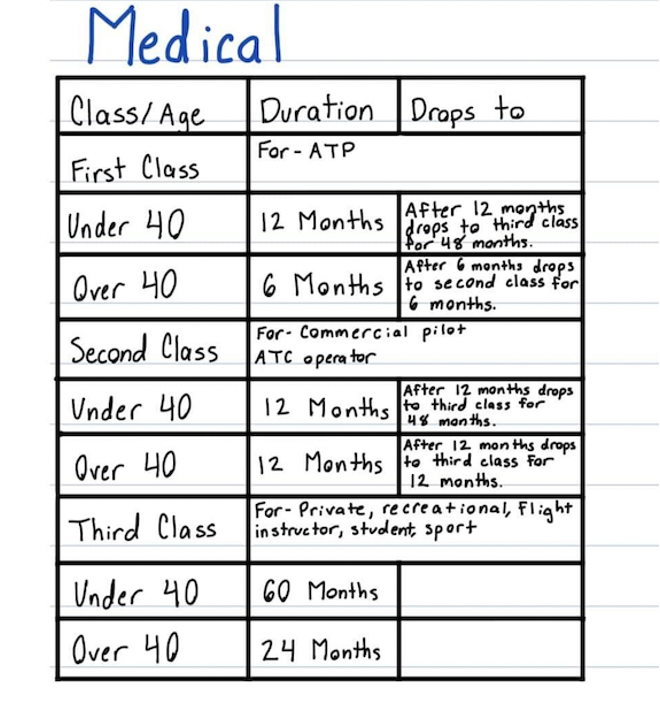 Medical
Class/Age Duration Drops to
First Class For- ATP
Under 40 12 Months After 12 months
drops to third class
for 48 months.
Over 40 6 Months After 6 months drops
to second class for
6 months.
Second Class For- Commercial pilot
ATC operator
Under 40 12 Months After 12 months drops
to third class for
48 months.
Over 40 12 Months After 12 months drops
to third class for
12 months.
Third Class For- Private, recreational, flight
instructor, student, sport
Under 40 60 Months
Over 40 24 Months